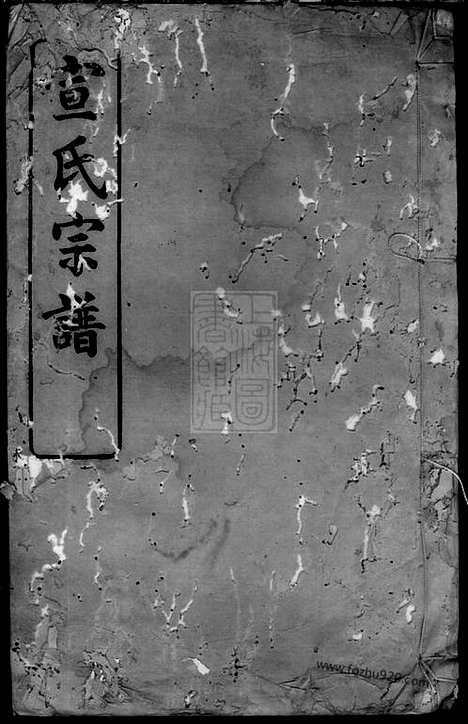 宣氏宗譜
上海圖
書館藏
www.fozhu920.com